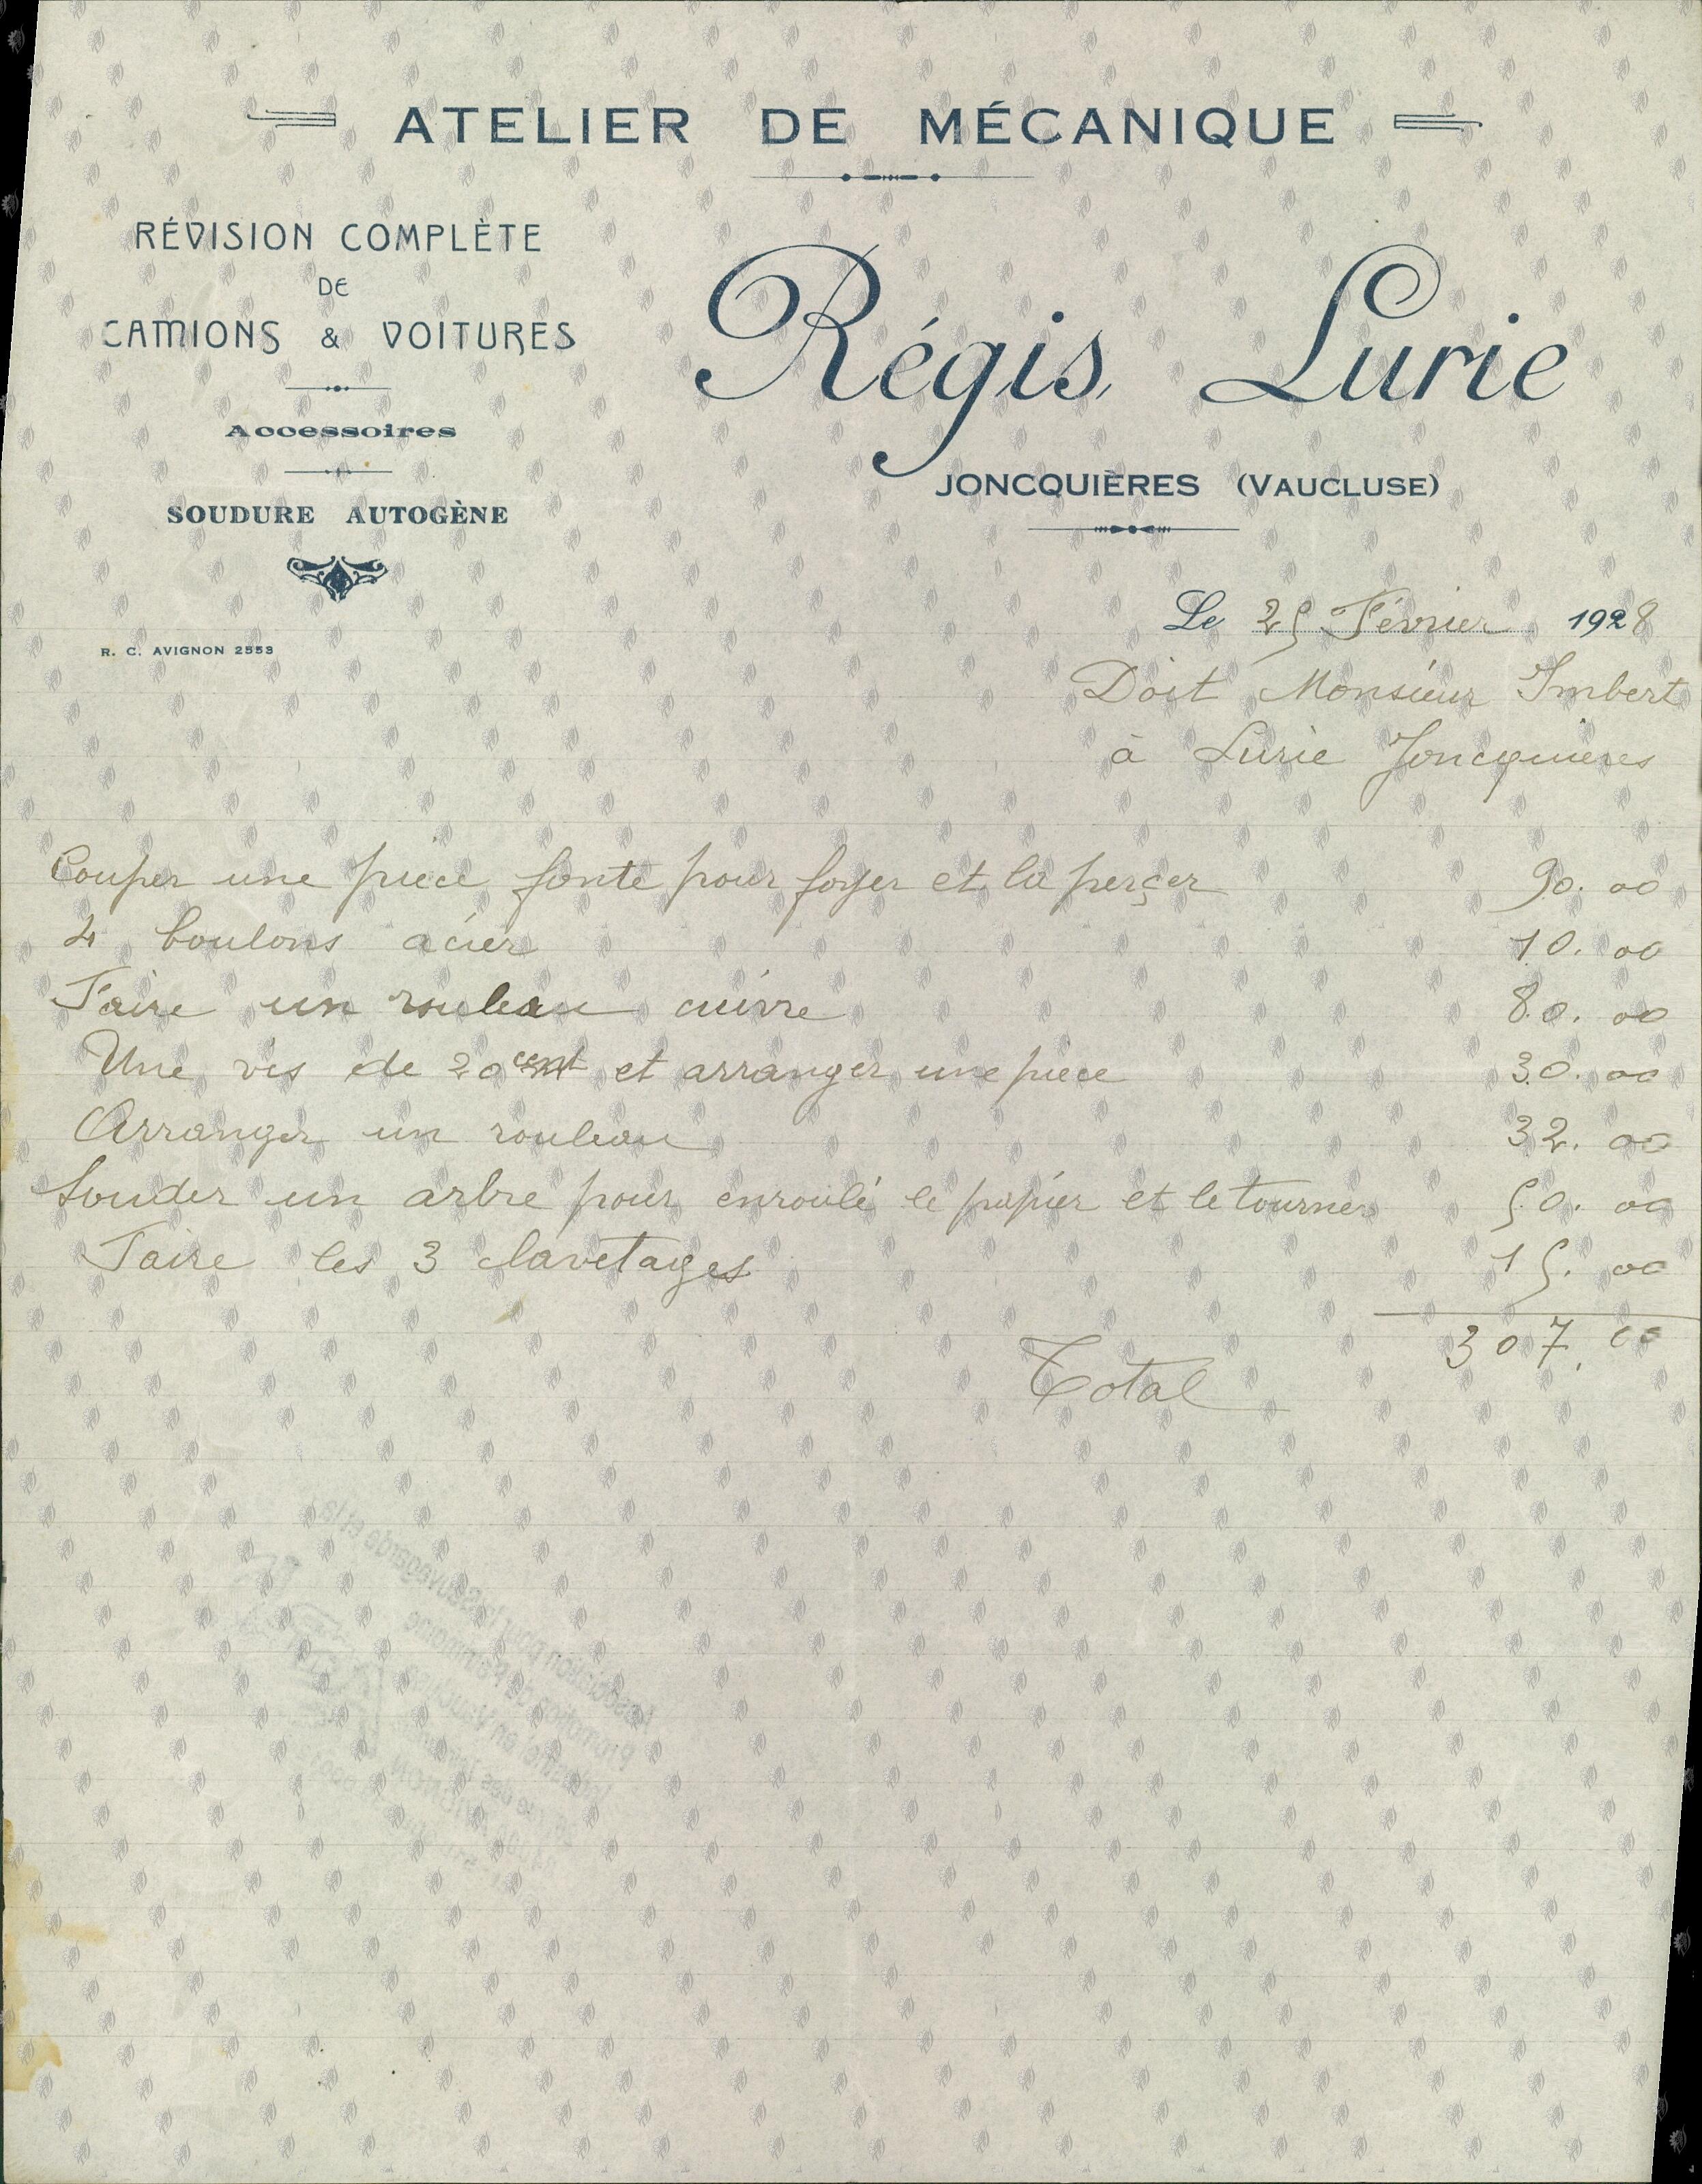 ATELIER DE MÉCANIQUE
RÉVISION COMPLÈTE
DE
CAMIONS & VOITURES
Accessoires
SOUDURE AUTOGÈNE
R. C. AVIGNON 2553
Régis Lurie
JONCQUIÈRES (VAUCLUSE)
Le 25 Février 1928
Doit Monsieur Imbert
à Lurie Joncquières
Couper une pièce fonte pour foyer et la perçer 90.00
4 boulons acier 10.00
Faire un rouleau cuivre 80.00
Une vis de 20 et arranger une pièce 30.00
Arranger un rouleau 32.00
Souder un arbre pour enroulé le papier et le tourner 50.00
Faire les 3 clavetages 15.00
307.00
Total